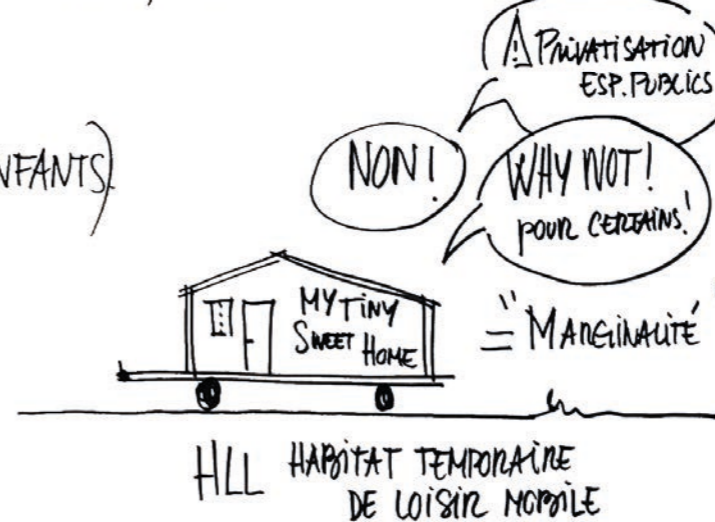 ⚠ PRIVATISATION
ESP. PUBLICS
NFANTS)
NON!
WHY NOT!
POUR CERTAINS!
MY TINY
SWEET HOME
= "MARGINALITÉ
HLL HABITAT TEMPORAIRE
DE LOISIR MOBILE